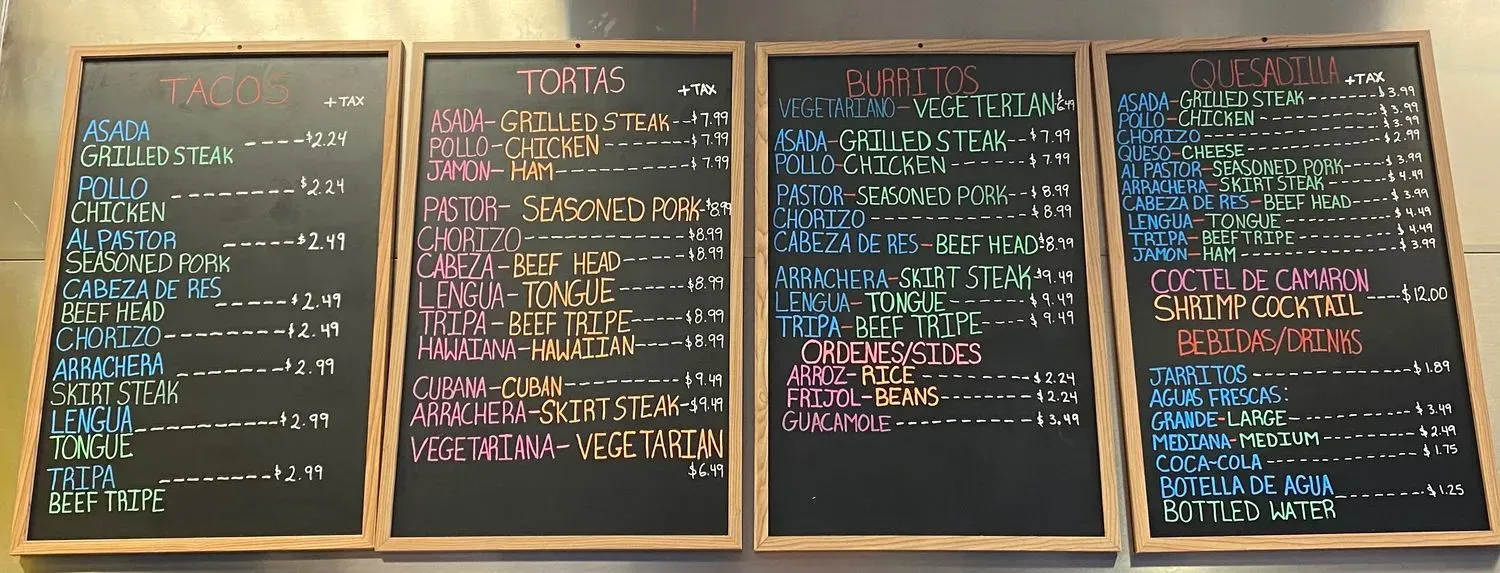 TACOS
+TAX
ASADA ----$2.24
GRILLED STEAK
POLLO --------$2.24
CHICKEN
AL PASTOR -----$2.49
SEASONED PORK
CABEZA DE RES
BEEF HEAD ------$2.49
CHORIZO---------$2.49
ARRACHERA --------$2.99
SKIRT STEAK
LENGUA----------$2.99
TONGUE
TRIPA --------$2.99
BEEF TRIPE
TORTAS
+TAX
ASADA-GRILLED STEAK--$7.99
POLLO-CHICKEN-------$7.99
JAMON-HAM---------$7.99
PASTOR- SEASONED PORK-$8.99
CHORIZO-------------$8.99
CABEZA-BEEF HEAD-----$8.99
LENGUA-TONGUE------$8.99
TRIPA-BEEF TRIPE-----$8.99
HAWAIANA-HAWAIIAN----$8.99
CUBANA-CUBAN---------$9.49
ARRACHERA-SKIRT STEAK-$9.49
VEGETARIANA-VEGETARIAN
$6.49
BURRITOS
VEGETARIANO-VEGETERIAN$6.49
ASADA-GRILLED STEAK---$7.99
POLLO-CHICKEN------$7.99
PASTOR-SEASONED PORK--$8.99
CHORIZO------------$8.99
CABEZA DE RES-BEEF HEAD$8.99
ARRACHERA-SKIRT STEAK$9.49
LENGUA-TONGUE------$9.49
TRIPA-BEEF TRIPE----$9.49
ORDENES/SIDES
ARROZ-RICE---------$2.24
FRIJOL-BEANS-------$2.24
GUACAMOLE---------$3.49
QUESADILLA
+TAX
ASADA-GRILLED STEAK-------$3.99
POLLO-CHICKEN----------$3.99
CHORIZO--------------$3.99
QUESO-CHEESE----------$2.99
AL PASTOR-SEASONED PORK---$3.99
ARRACHERA-SKIRT STEAK-----$4.49
CABEZA DE RES-BEEF HEAD---$3.99
LENGUA-TONGUE---------$4.49
TRIPA-BEEF TRIPE--------$4.49
JAMON-HAM------------$3.99
COCTEL DE CAMARON
SHRIMP COCKTAIL----$12.00
BEBIDAS/DRINKS
JARRITOS--------------$1.89
AGUAS FRESCAS:
GRANDE-LARGE---------$3.49
MEDIANA-MEDIUM-------$2.49
COCA-COLA------------$1.75
BOTELLA DE AGUA-------$1.25
BOTTLED WATER